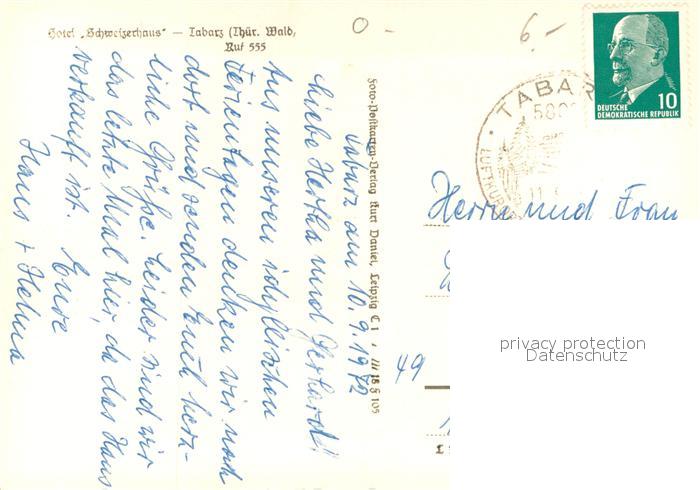 Hotel „Schweizerhaus" — Tabarz (Thür. Wald)
Ruf 555
Tabarz am 10.9.1972
Liebe Hertha und Gerhard!
Aus unseren idyllischen
Ferientagen denken wir nach
dort und senden Euch herz-
liche Grüße. Leider sind wir
das letzte Mal hier, da das Haus
verkauft ist. Eure
Hans + Helma
Foto-Postkarten-Verlag Kurt Daniel, Leipzig C 1
III 18 8 105
0 -
6.-
TABAR
LUFTKUR
DEUTSCHE
DEMOKRATISCHE REPUBLIK
10
Herrn und Frau
49
privacy protection
Datenschutz